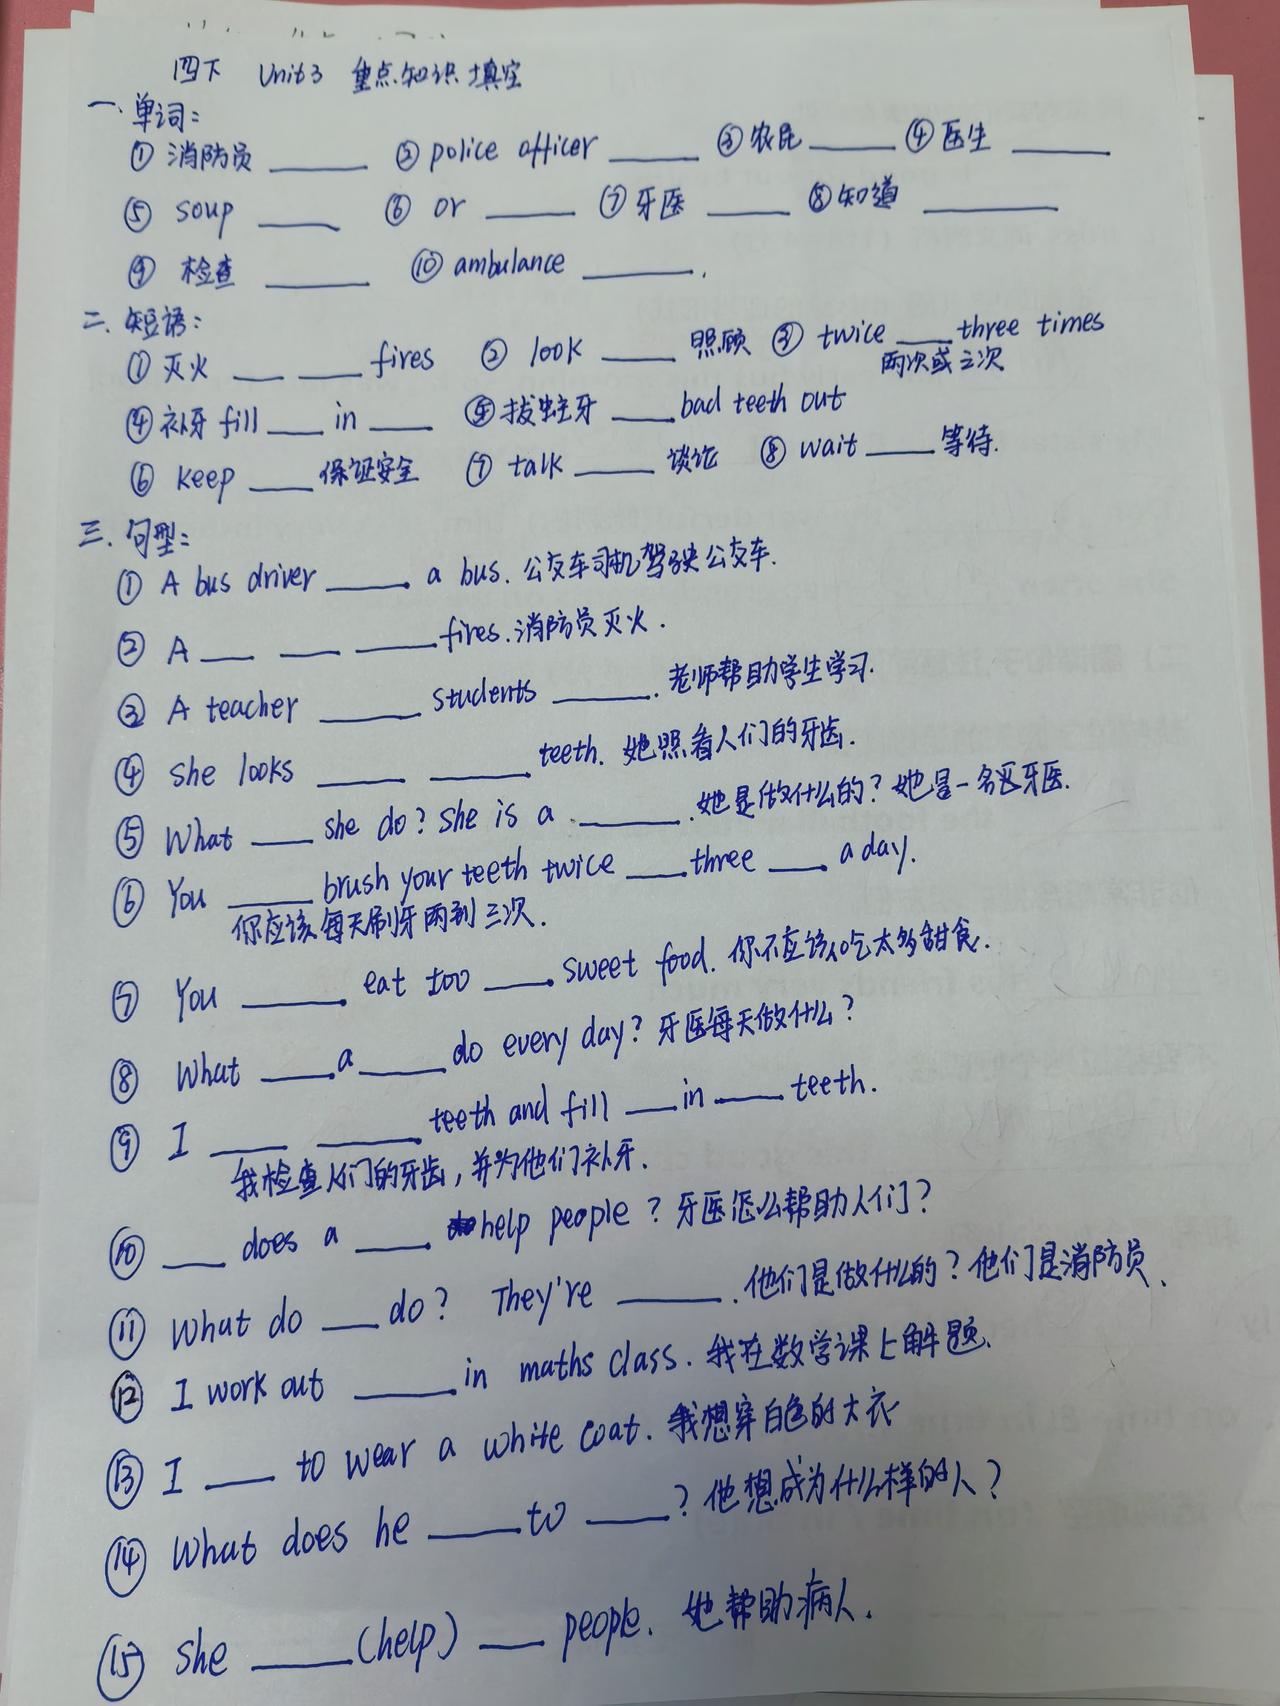 四下 Unit3 重点知识填空
一、单词:
① 消防员 ____ ② police officer ____ ③ 农民 ____ ④ 医生 ____
⑤ soup ____ ⑥ or ____ ⑦ 牙医 ____ ⑧ 知道 ____
⑨ 检查 ____ ⑩ ambulance ____.
二、短语:
① 灭火 ____ ____ fires ② look ____ 照顾 ③ twice ____ three times
两次或三次
④ 补牙 fill ____ in ____ ⑤ 拔蛀牙 ____ bad teeth out
⑥ keep ____ 保证安全 ⑦ talk ____ 谈论 ⑧ wait ____ 等待.
三、句型:
① A bus driver ____ a bus. 公交车司机驾驶公交车.
② A ____ ____ ____ fires. 消防员灭火.
③ A teacher ____ students ____. 老师帮助学生学习.
④ she looks ____ ____ teeth. 她照看人们的牙齿.
⑤ What ____ she do? she is a ____. 她是做什么的? 她是一名牙医.
⑥ You ____ brush your teeth twice ____ three ____ a day.
你应该每天刷牙两到三次.
⑦ You ____ eat too ____ sweet food. 你不应该吃太多甜食.
⑧ What ____ a ____ do every day? 牙医每天做什么?
⑨ I ____ ____ teeth and fill ____ in ____ teeth.
我检查人们的牙齿, 并为他们补牙.
⑩ ____ does a ____ help people? 牙医怎么帮助人们?
⑪ What do ____ do? They're ____. 他们是做什么的? 他们是消防员.
⑫ I work out ____ in maths class. 我在数学课上解题.
⑬ I ____ to wear a white coat. 我想穿白色的大衣
⑭ What does he ____ to ____? 他想成为什么样的人?
⑮ she ____ (help) ____ people. 她帮助病人.